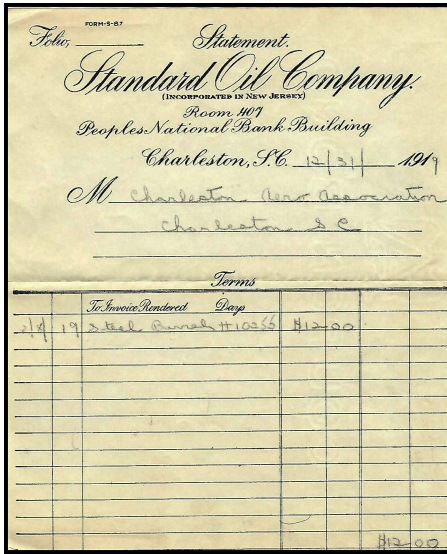 FORM-S-87
Folio,
Statement.
Standard Oil Company.
(INCORPORATED IN NEW JERSEY)
Room 407
Peoples National Bank Building
Charleston, S.C. 12/31/ 1919
M Charleston Aero Association
Charleston S C
Terms
To Invoice Rendered Days
19 Steel Barrel # 10255 $12.00
$12.00